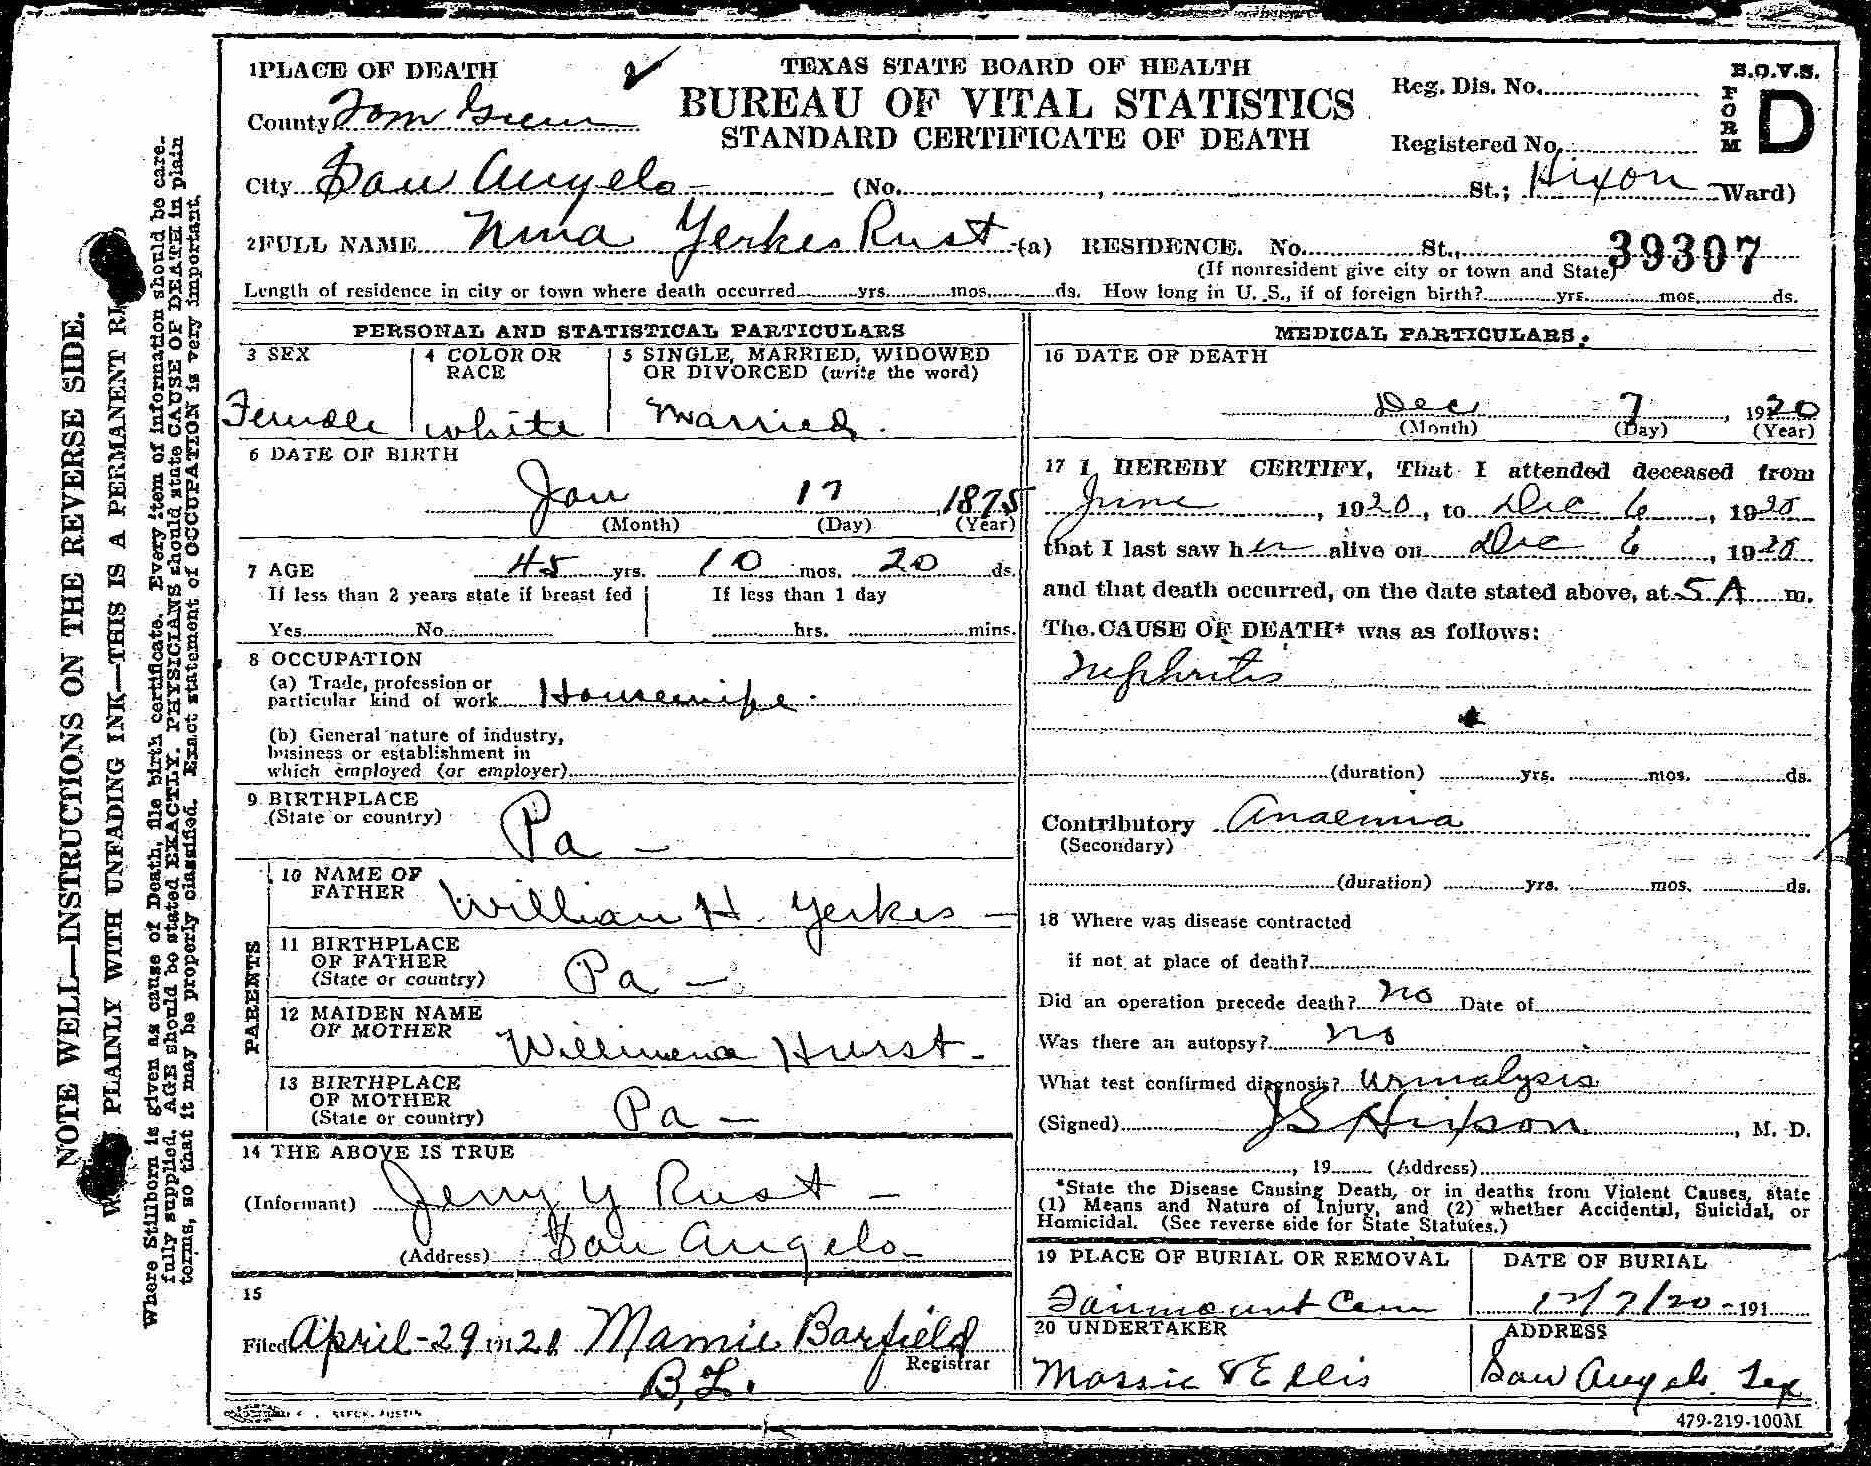 1PLACE OF DEATH
TEXAS STATE BOARD OF HEALTH
BUREAU OF VITAL STATISTICS
STANDARD CERTIFICATE OF DEATH
Reg. Dis. No.
Registered No.
B.O.V.S.
FORM D
County Tom Green
City San Angelo (No. St.; Hixon Ward)
2FULL NAME Nina Yerkes Rust (a) RESIDENCE. No. St., 39307
(If nonresident give city or town and State)
Length of residence in city or town where death occurred yrs. mos. ds. How long in U. S., if of foreign birth? yrs. mos. ds.
PERSONAL AND STATISTICAL PARTICULARS
3 SEX
Female
4 COLOR OR RACE
white
5 SINGLE, MARRIED, WIDOWED
OR DIVORCED (write the word)
Married.
6 DATE OF BIRTH
Jan 17, 1875
(Month) (Day) (Year)
7 AGE 45 yrs. 10 mos. 20 ds.
If less than 2 years state if breast fed
Yes No
If less than 1 day
hrs. mins.
8 OCCUPATION
(a) Trade, profession or
particular kind of work Housewife.
(b) General nature of industry,
business or establishment in
which employed (or employer)
9 BIRTHPLACE
(State or country)
Pa —
PARENTS
10 NAME OF
FATHER William H. Yerkes —
11 BIRTHPLACE
OF FATHER
(State or country) Pa —
12 MAIDEN NAME
OF MOTHER Willimena Hurst —
13 BIRTHPLACE
OF MOTHER
(State or country) Pa —
14 THE ABOVE IS TRUE
(Informant) Jerry Y Rust —
(Address) San Angelo —
15
Filed April-29 1921 Mamie Barfield
Registrar
B.L.
MEDICAL PARTICULARS.
16 DATE OF DEATH
Dec 7, 1920
(Month) (Day) (Year)
17 I HEREBY CERTIFY, That I attended deceased from
June, 1920, to Dec 6, 1920
that I last saw her alive on Dec 6, 1920
and that death occurred, on the date stated above, at 5 A m.
The CAUSE OF DEATH* was as follows:
Nephritis
(duration) yrs. mos. ds.
Contributory Anaemia
(Secondary)
(duration) yrs. mos. ds.
18 Where was disease contracted
if not at place of death?
Did an operation precede death? no Date of
Was there an autopsy? no
What test confirmed diagnosis? Urinalysis
(Signed) J S Hixson, M. D.
, 19 (Address)
*State the Disease Causing Death, or in deaths from Violent Causes, state
(1) Means and Nature of Injury, and (2) whether Accidental, Suicidal, or
Homicidal. (See reverse side for State Statutes.)
19 PLACE OF BURIAL OR REMOVAL
Fairmount Cem
DATE OF BURIAL
12/7/20 - 191
20 UNDERTAKER
Massie & Ellis
ADDRESS
San Angelo. Tex
479-219-100M
NOTE WELL—INSTRUCTIONS ON THE REVERSE SIDE.
PLAINLY WITH UNFADING INK—THIS IS A PERMANENT
Where Stillborn is given as cause of Death, file birth certificate. Every item of information should be care-
fully supplied. AGE should be stated EXACTLY. PHYSICIANS should state CAUSE OF DEATH in plain
terms, so that it may be properly classified. Exact statement of OCCUPATION is very important.